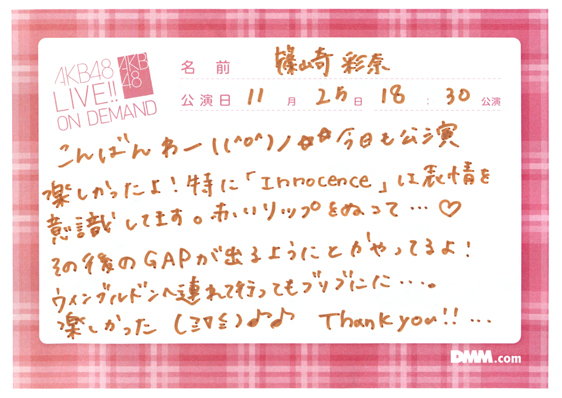 AKB48
LIVE!!
ON DEMAND
AKB
48
名前 篠崎 彩奈
公演日 11月 25日 18:30 公演
こんばんわー\(^o^)/ 今日も公演
楽しかったよ!特に「Innocence」は表情を
意識してます。赤いリップをぬって…♡
その後のGAPが出るようにとかやってるよ!
ウィンブルドンへ連れて行ってもブリブリに…。
楽しかった(≧∇≦)♪♪ Thank you!!…
DMM.com